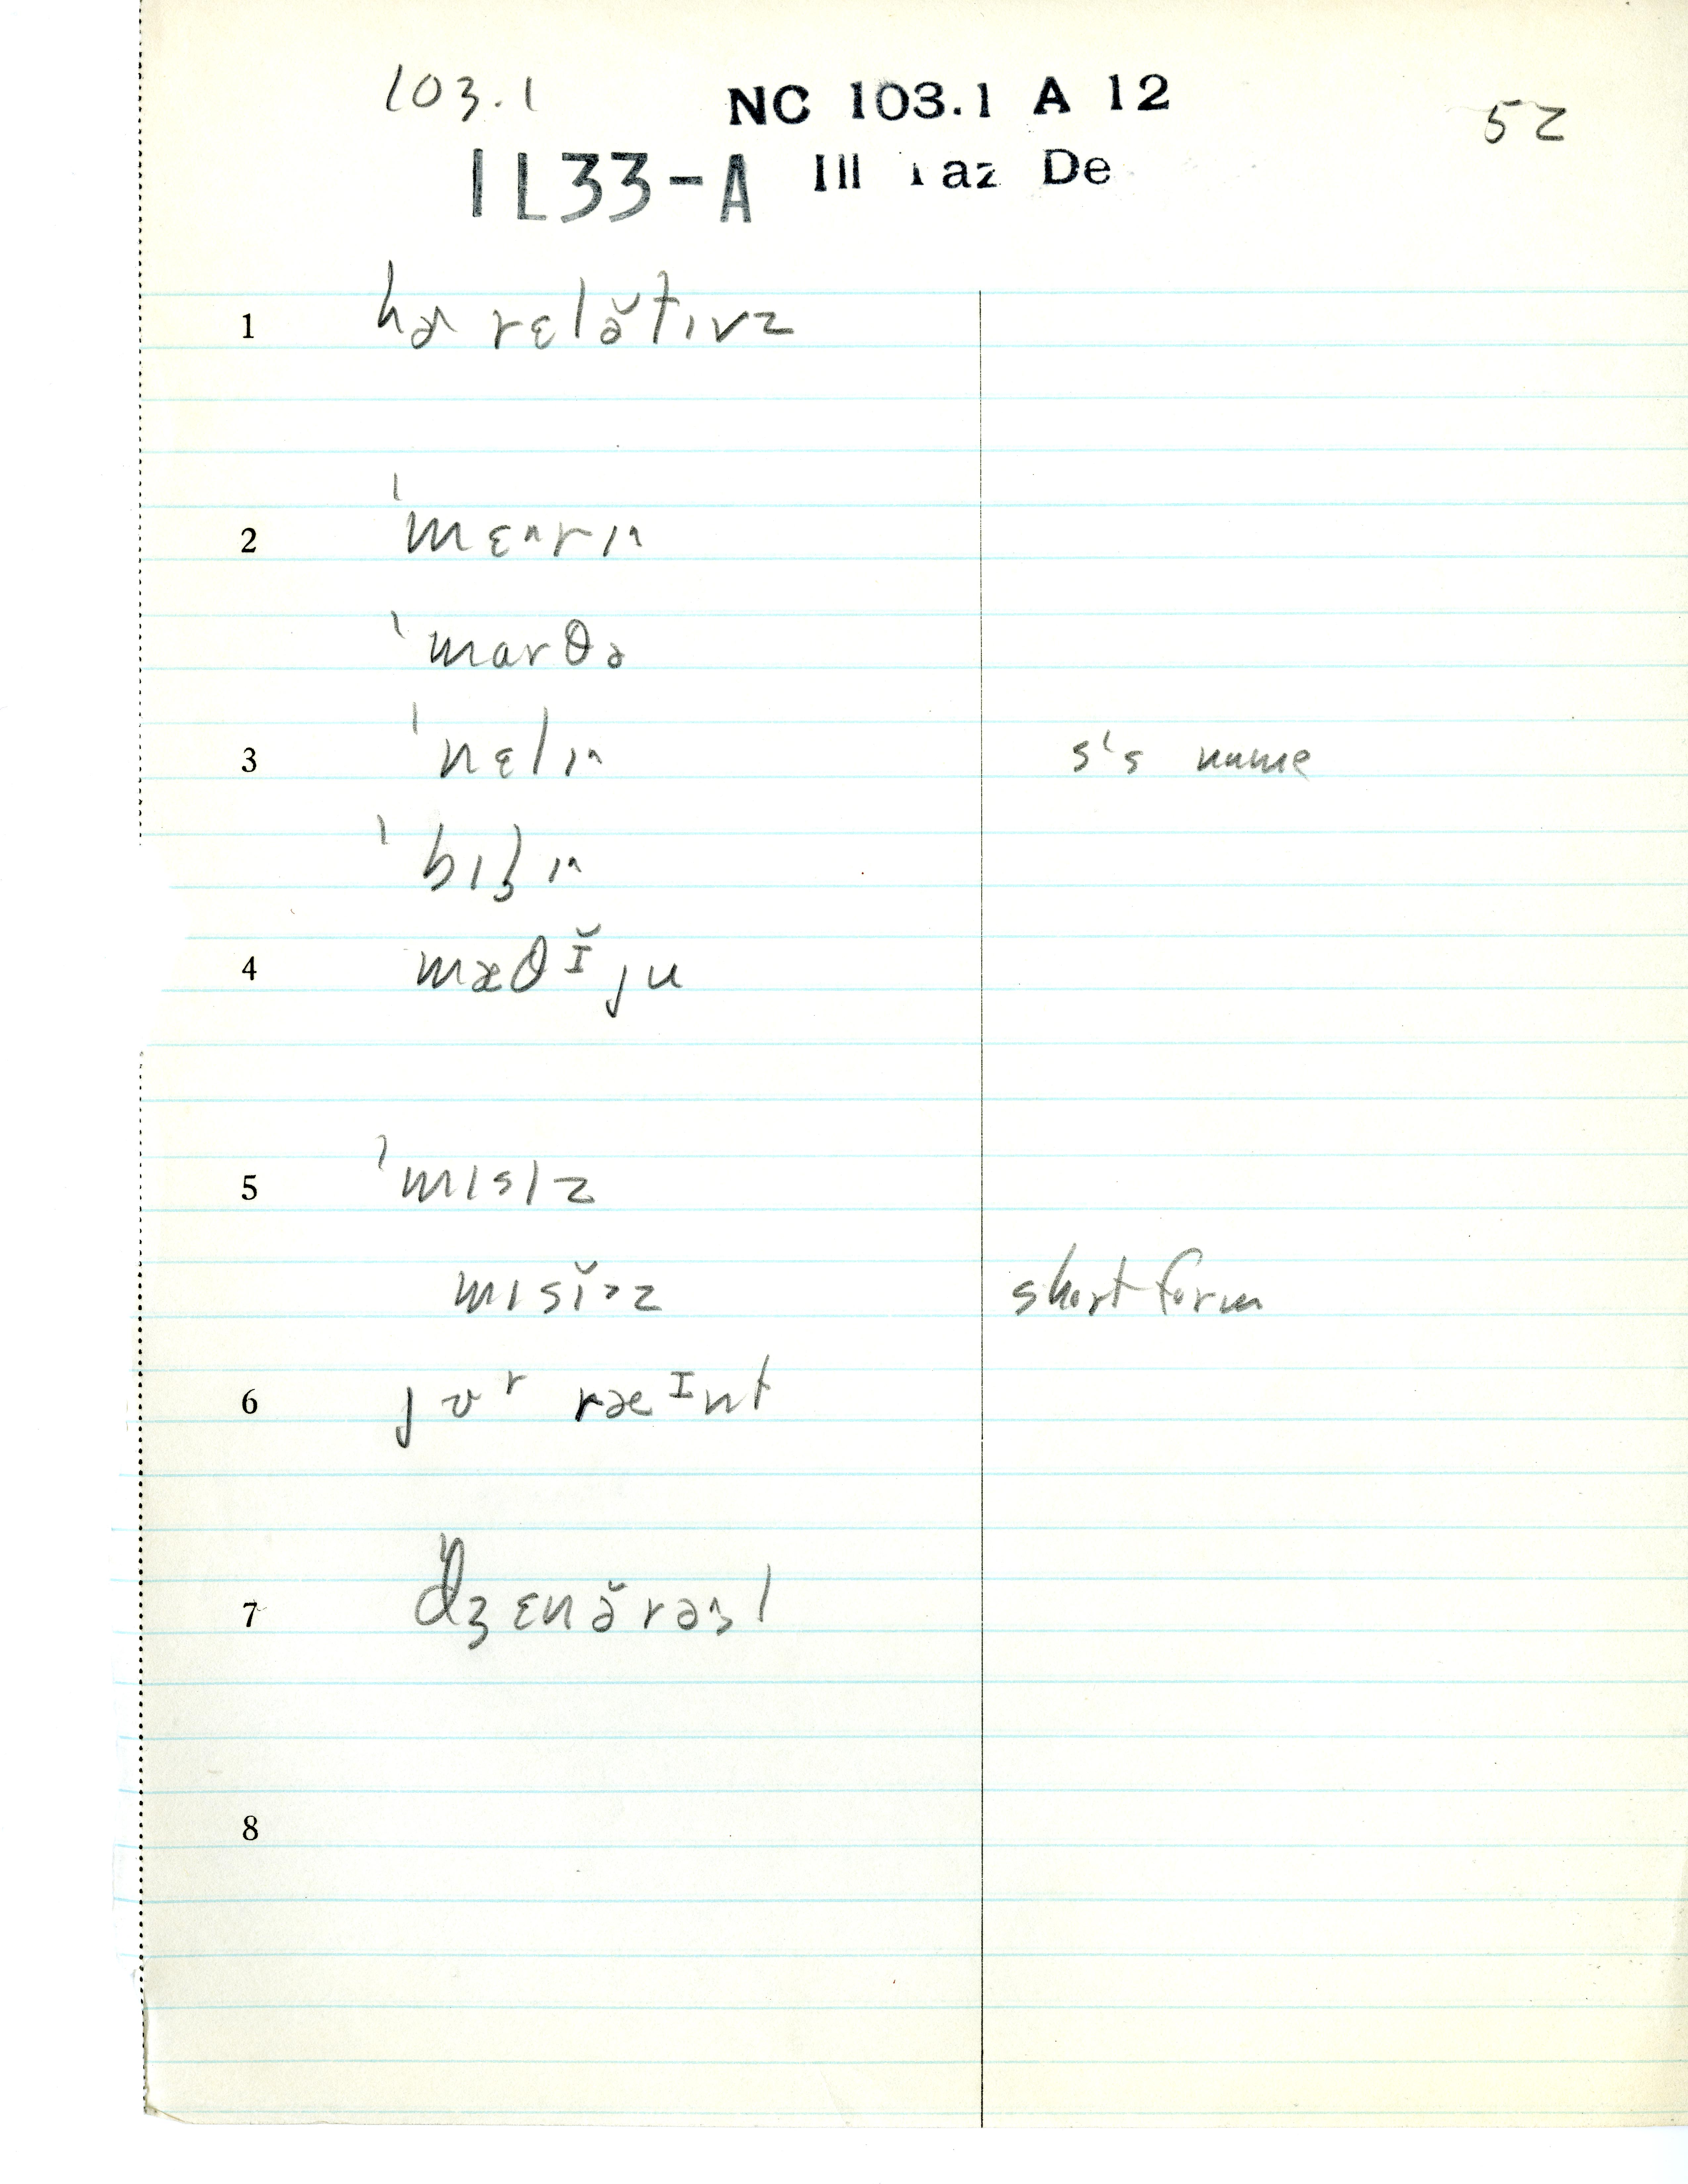 103.1 NC 103.1 A 12 52
IL33-A Ill Taz De
1 hɚ rɛlə̆tɪvz
2 ˈmɛ^rɪ^
ˈmɑrθə
3 ˈnɛlɪ^ s's name
ˈbɪlɪ^
4 mæθɪ̆ju
5 ˈmɪsɪz
mɪsĭ˃z short form
6 jʊʳ ræᴵnt
7 ˈdʒɛnə̆rə^l
8